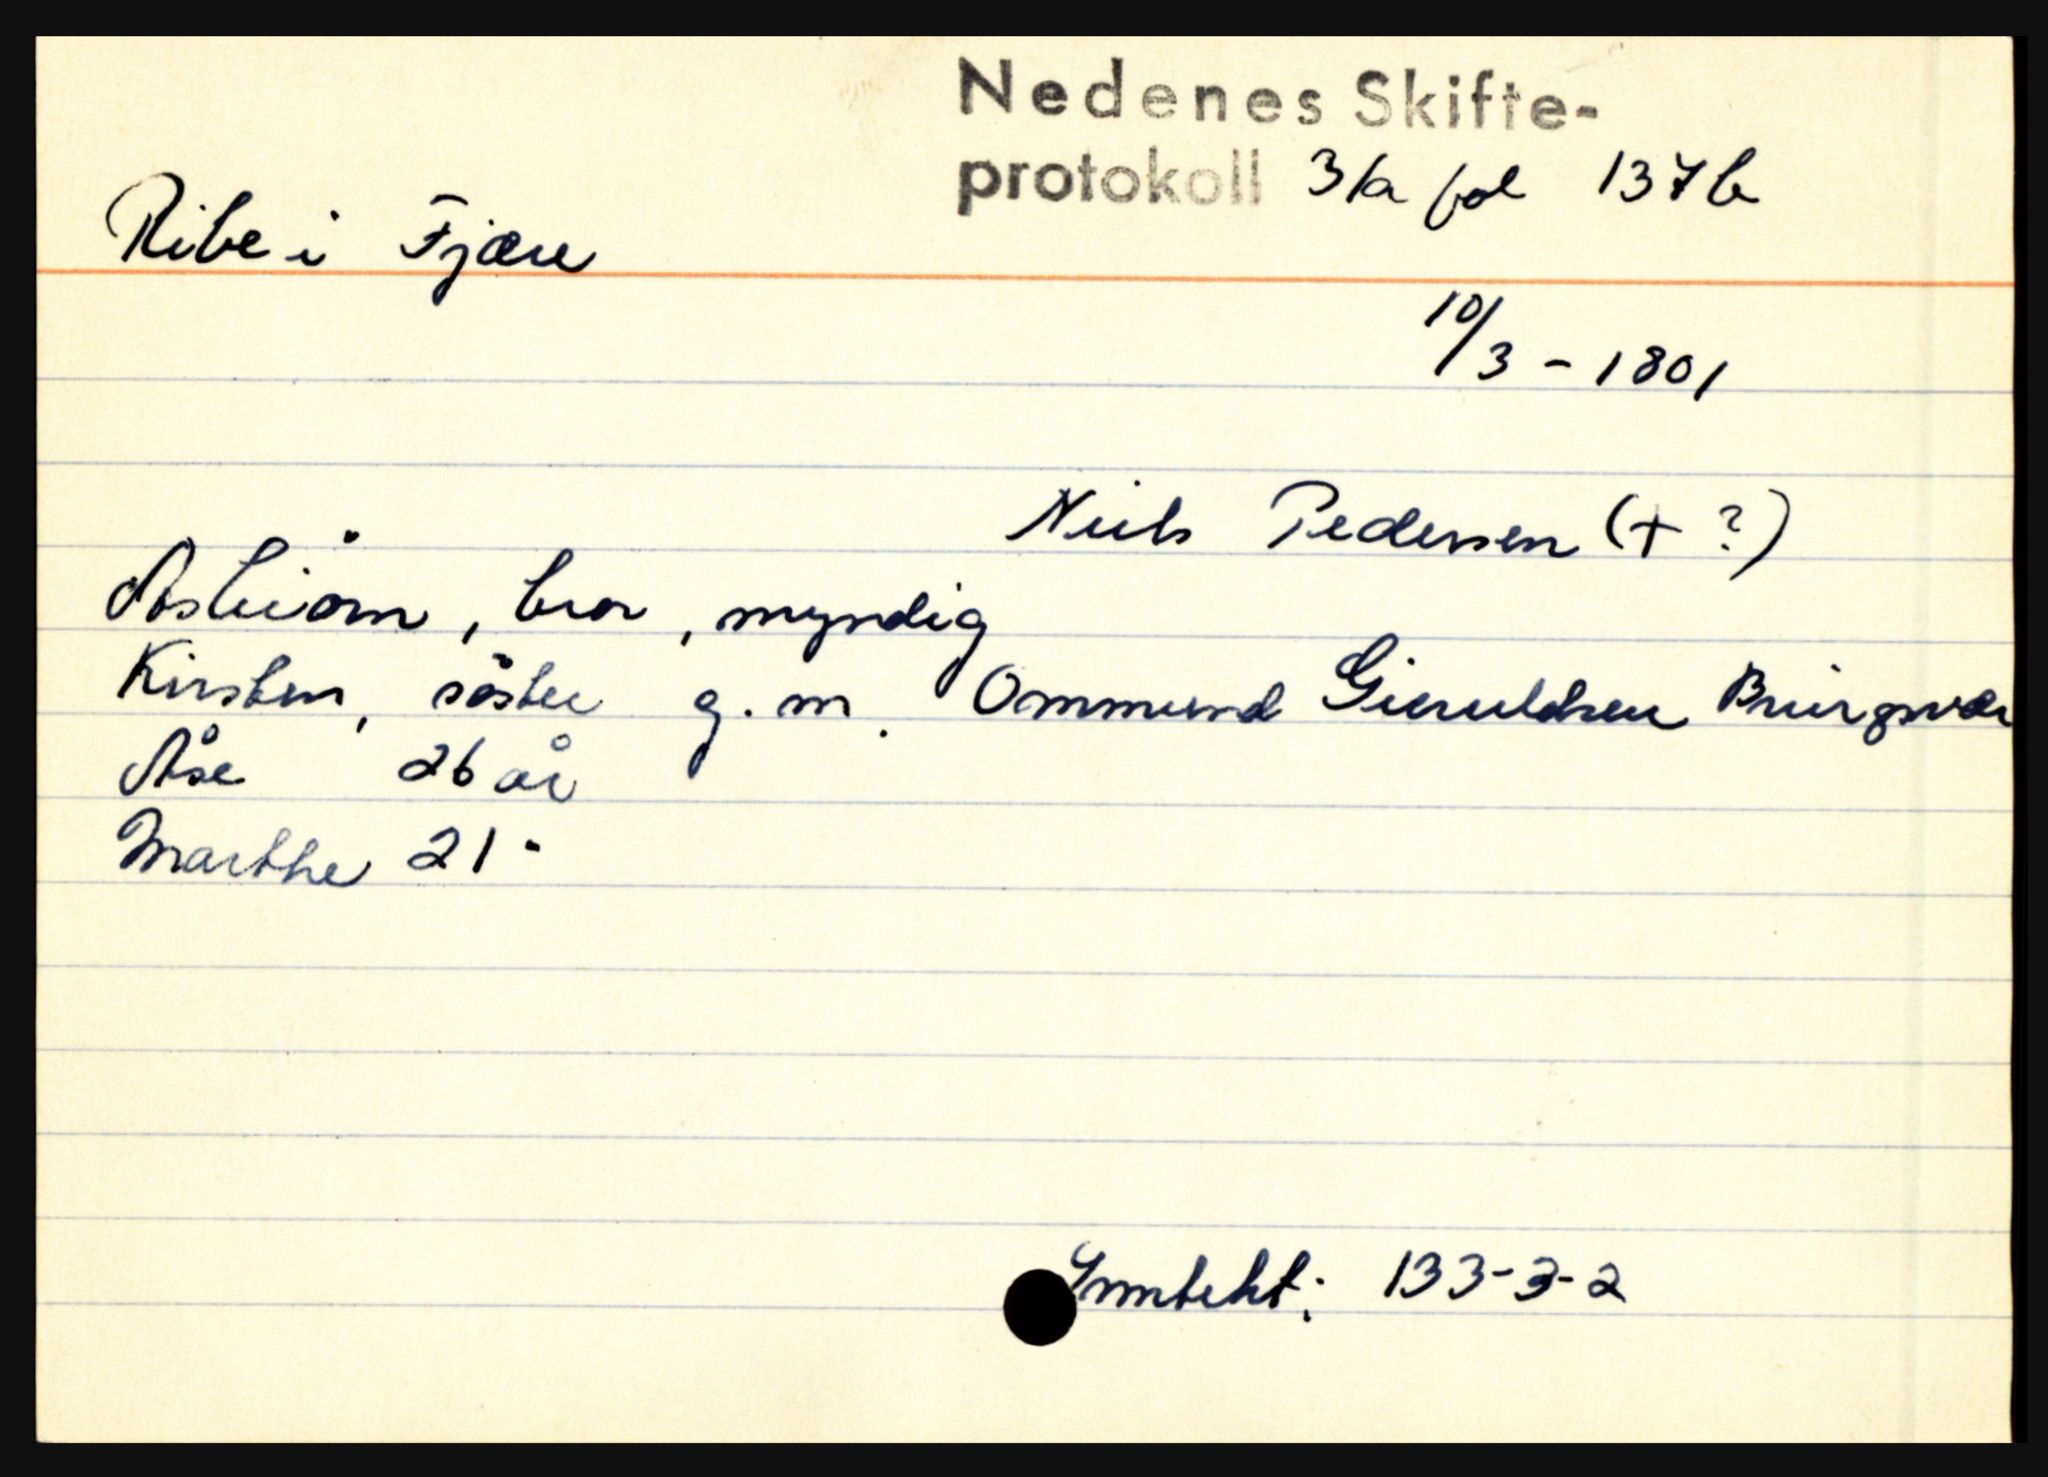 Nedenes Skifte-
protokoll 31a fol 137b
Ribe i Fjære
10/3 - 1801
Niels Pedersen (+ ?)
Asbiörn, bror, myndig
Kirsten, söster g. m. Ommund Gieruldsen Bringsvær
Åse 26 år
Marthe 21 "
Inntekt: 133-3-2